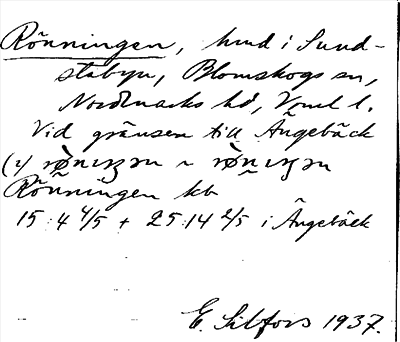 Rönningen, hmd i Sund-
stabyn, Blomskogs sn,
Nordmarks hd, Vrml l.
Vid gränsen till Ängebäck
Rönningen kb
15:4 4/5 + 25:14 2/5 i Ängebäck
E. Silfors 1937.